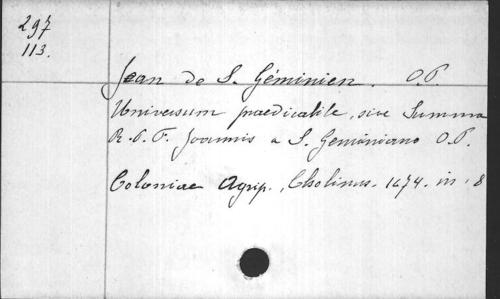 297
113.
Jean de S. Géminien. O.P.
Universum praedicabile, sive Summa
R.P.F. Joannis a S. Geminiano O.P.
Coloniae Agrip., Cholinus. 1674. in-8